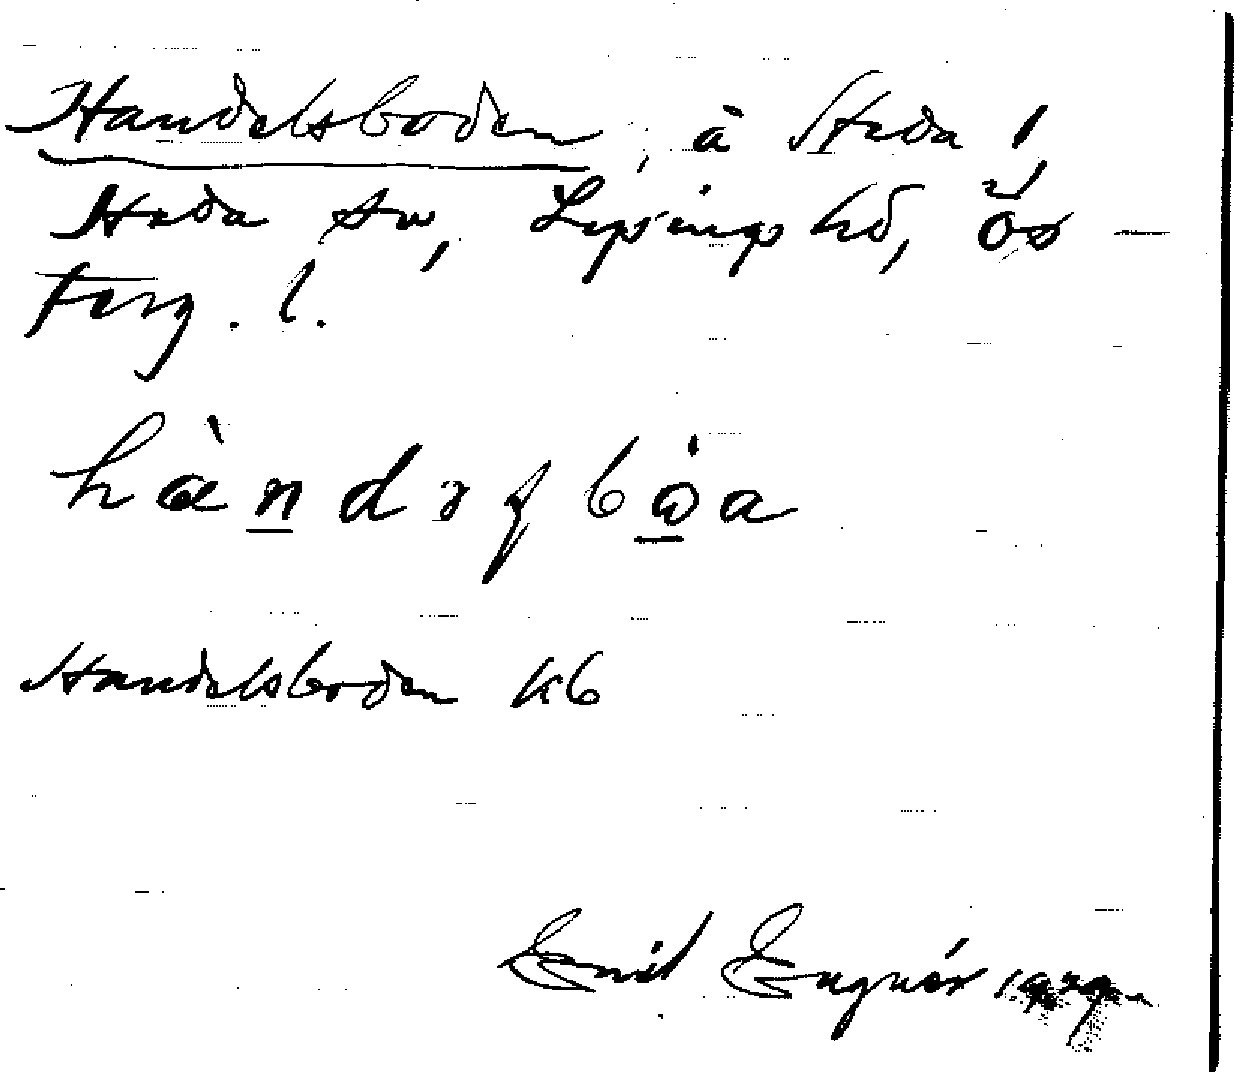 Handelsboden, å Heda 1,
Heda sn, Lysings hd, Ös-
terg. l.
hàndəʃbɷ̀a
Handelsboden kb
Emil Engnér 1929